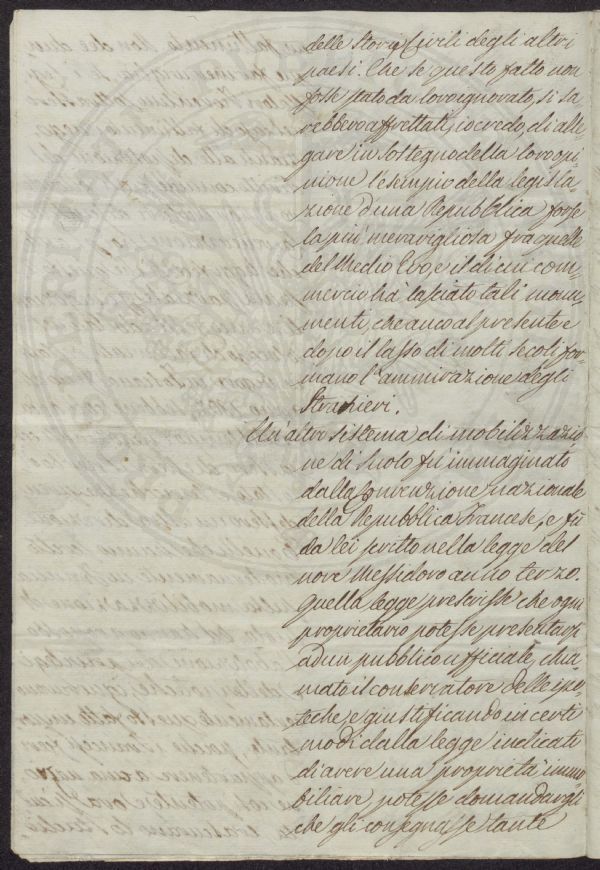 delle Storie Civili degli altri
paesi. Che se questo fatto non
fosse stato da loro ignorato, si sa
rebbero affrettati, io credo, di alle
gare in sostegno della loro opi
nione l'esempio della legisla
zione d'una Repubblica forse
la più meravigliosa fra quelle
del Medio Evo, e il di cui com
mercio há lasciato tali monu
menti, che anco al presente e
dopo il lasso di molti secoli for
mano l'ammirazione degli
Stranieri.
Un'altro sistema di mobilizzazio
ne di Suolo fù immaginato
dalla Convenzione nazionale
della Repubblica Francese, e fù
da lei scritto nella legge del
nove Messidoro anno terzo.
Quella legge prescrisse che ogni
proprietario potesse presentarsi
ad un pubblico uffiziale, chia
mato il conservatore delle ipo
teche, e giustificando in certi
modi dalla legge indicati
di avere una proprietà immo
biliare potesse domandargli
che gli consegnasse tante